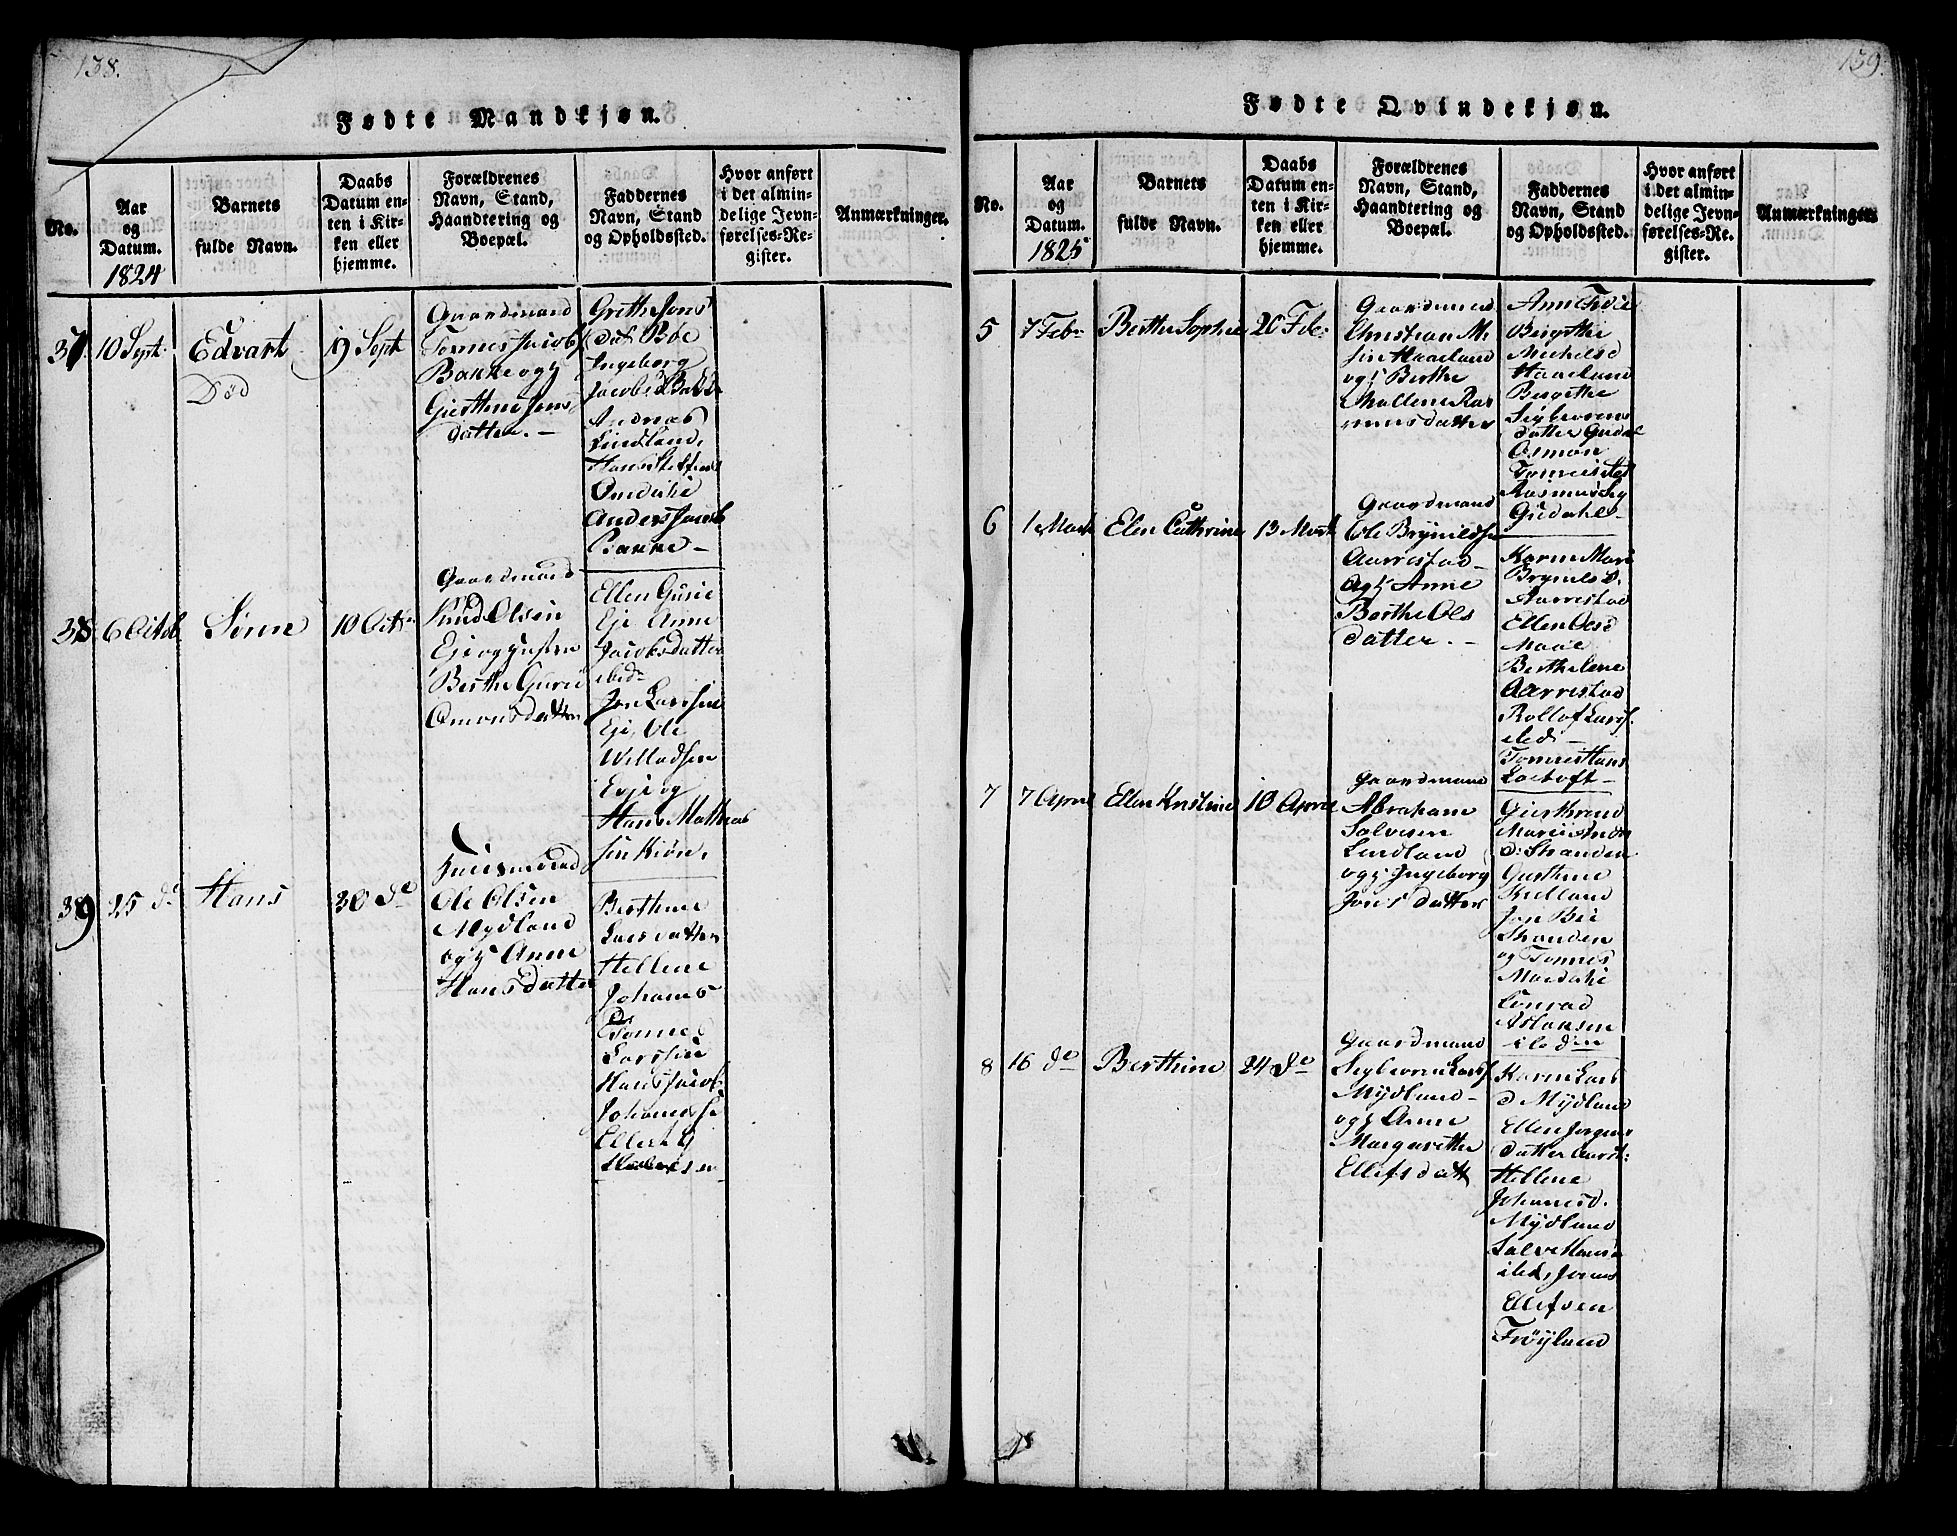 138.
Fødte Mandkjøn.
No.
Aar
og
Datum.
1824
Barnets
fulde Navn.
Daabs
Datum en-
ten i Kir-
ken eller
hjemme.
Forældrenes
Navn, Stand,
Haandtering og
Boepæl.
Faddernes
Navn, Stand
og Opholdssted.
Hvor anført
i det almin-
delige Jevn-
førelses-Re-
gister.
Anmærkninger.
37
10 Sept.
Edvart
Død
19 Sept
Gaardmand
Tønnes Jacobs
Bakke og
Gierthine Jens
datter. -
Grethe Jons
dat Bøe
Ingeborg
Jacobsd Bakke
Andreas
Lindland,
Hans
Omdalie
Anders Jacobs
Bakke -
38
6 Octob
Sørine
10 Octr
Gaardmand
Knud Olsen
Eje og
Berthe Gurie
Omonsdatter
Ellen Gurie
Eje Anne
Jacobsdatter
ibid
Jon Larssen
Eje, Ole
Willadsen
Eeje og
Hans Mathias
sen Kiøn.
39
25 de
Hans
30 de
Huusmand
Ole Olsen
Mydland
og Anne
Hansdatter
Berthine
Larsdatter
Hellene
Johanes
D
Tønnes
Larssen
Hans Jacob
Johanesse
Ellert
139.
Fødte Qvindekjøn.
No.
Aar
og
Datum.
1825
Barnets
fulde Navn.
Daabs
Datum en-
ten i Kir-
ken eller
hjemme.
Forældrenes
Navn, Stand,
Haandtering og
Boepæl.
Faddernes
Navn, Stand
og Opholdssted.
Hvor anført
i det almin-
delige Jevn-
førelses-Re-
gister.
Anmærkninger.
5
7 Febr
Berthe Sophie
20 Feb:
Gaardmand
Christian M.
sen Haaeland
og Berthe
Mallene Ras
musdatter
Ann
Birgithe
Michelsd
Haaeland
Birgithe
Sigbiørns
datter Gudal
Osmon
Tønnes
Rasmus Sig
Gudahl -
6
1 Mart
Elen Cathrine
13 Mart
Gaardmand
Ole Brynildse
Aarrestad -
og Anne
Berthe Ols
datter. -
Karen Mari
Brynels d.
Aarrestad
Ellen Olsd
Maae
Berthe Lene
Aarrestad
Rollof Larss.
ibid -
Tønnes Hans
Loetoft -
7
7 April
Ellen Kristine
10 April
Gaardmand
Abraham
Salvesen
Lindland
og Ingeborg
Jonsdatter
Gierthrud
Marie Andr
d: Stranden
Gurthine
Kielland
Jon Bie
Stranden
og Tønnes
Mardalie
Conrad
Aslaksen
ibiden
8
16 de
Berthine
24 de
Gaardmand
Sigbiøren Larss
Mydland -
og Anne
Margarethe
Ellefsdatt
Karen Lars
d Mydland
Ellen Jorgens
datter Aarst:
Hellene
Johanesd.
Mydland
Salve Hans
ibid, Jonas
Ellefsen
Frøyland